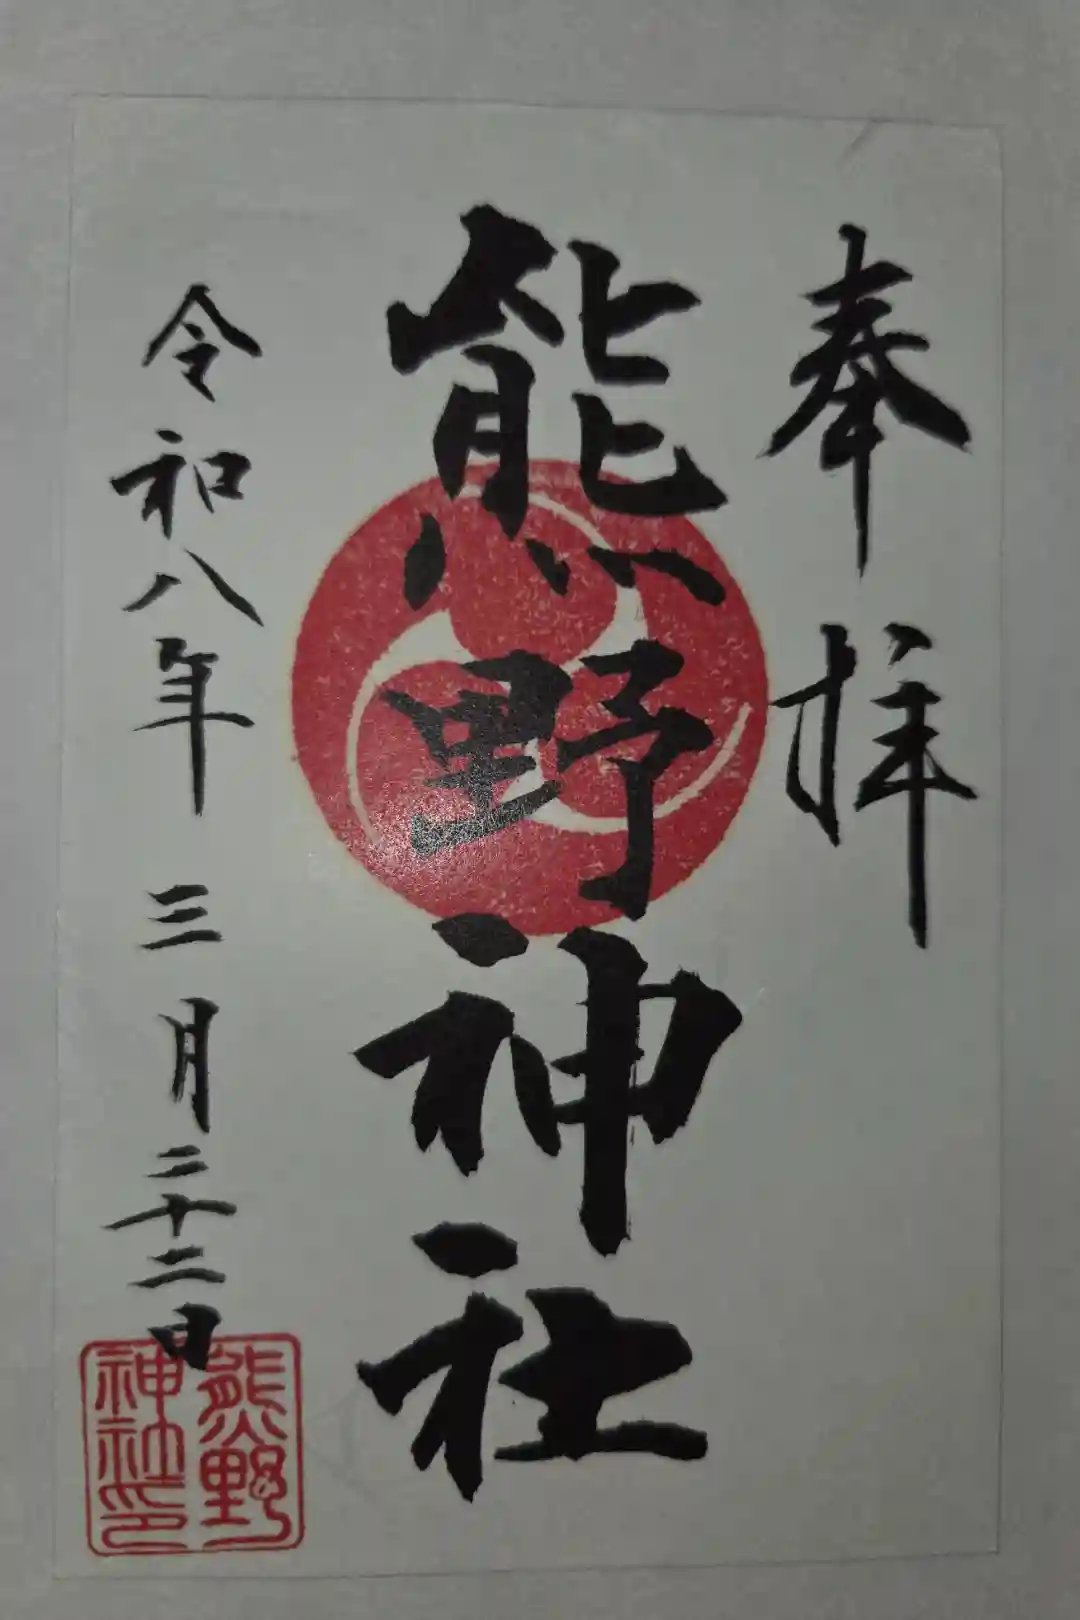 奉拝
熊野神社
令和八年三月二十二日
熊野
神社印